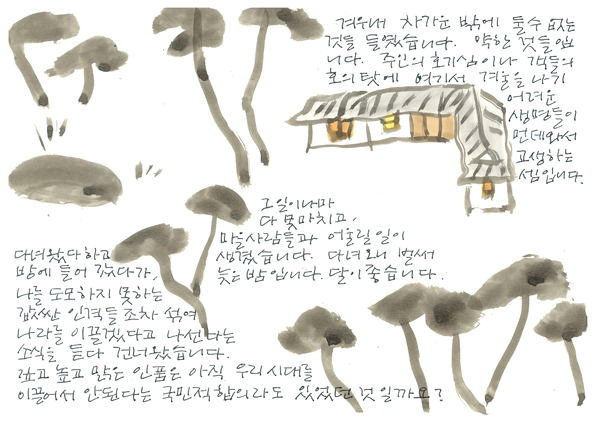 겨우내 차가운 밖에 둘 수 없는
것들 들였습니다. 약한 것들입
니다. 주인의 호기심이나 객들의
호의 탓에 여기서 겨울을 나기
어려운
생명들이
먼데와서
고생하는
셈입니다.
그일이나마
다 못마치고,
마을사람들과 어울릴 일이
생겼습니다. 다녀오니 벌써
늦은 밤입니다. 달이 좋습니다.
다녀왔다 하고
방에 들어 갔다가,
나를 도모하지 못하는
값싼 인격들 조차 섞여
나라를 이끌겠다고 나선다는
소식을 듣다 건너왔습니다.
깊고 높고 맑은 인품은 아직 우리 시대를
이끌어서 안된다는 국민적합의라도 있었던 것일까요?